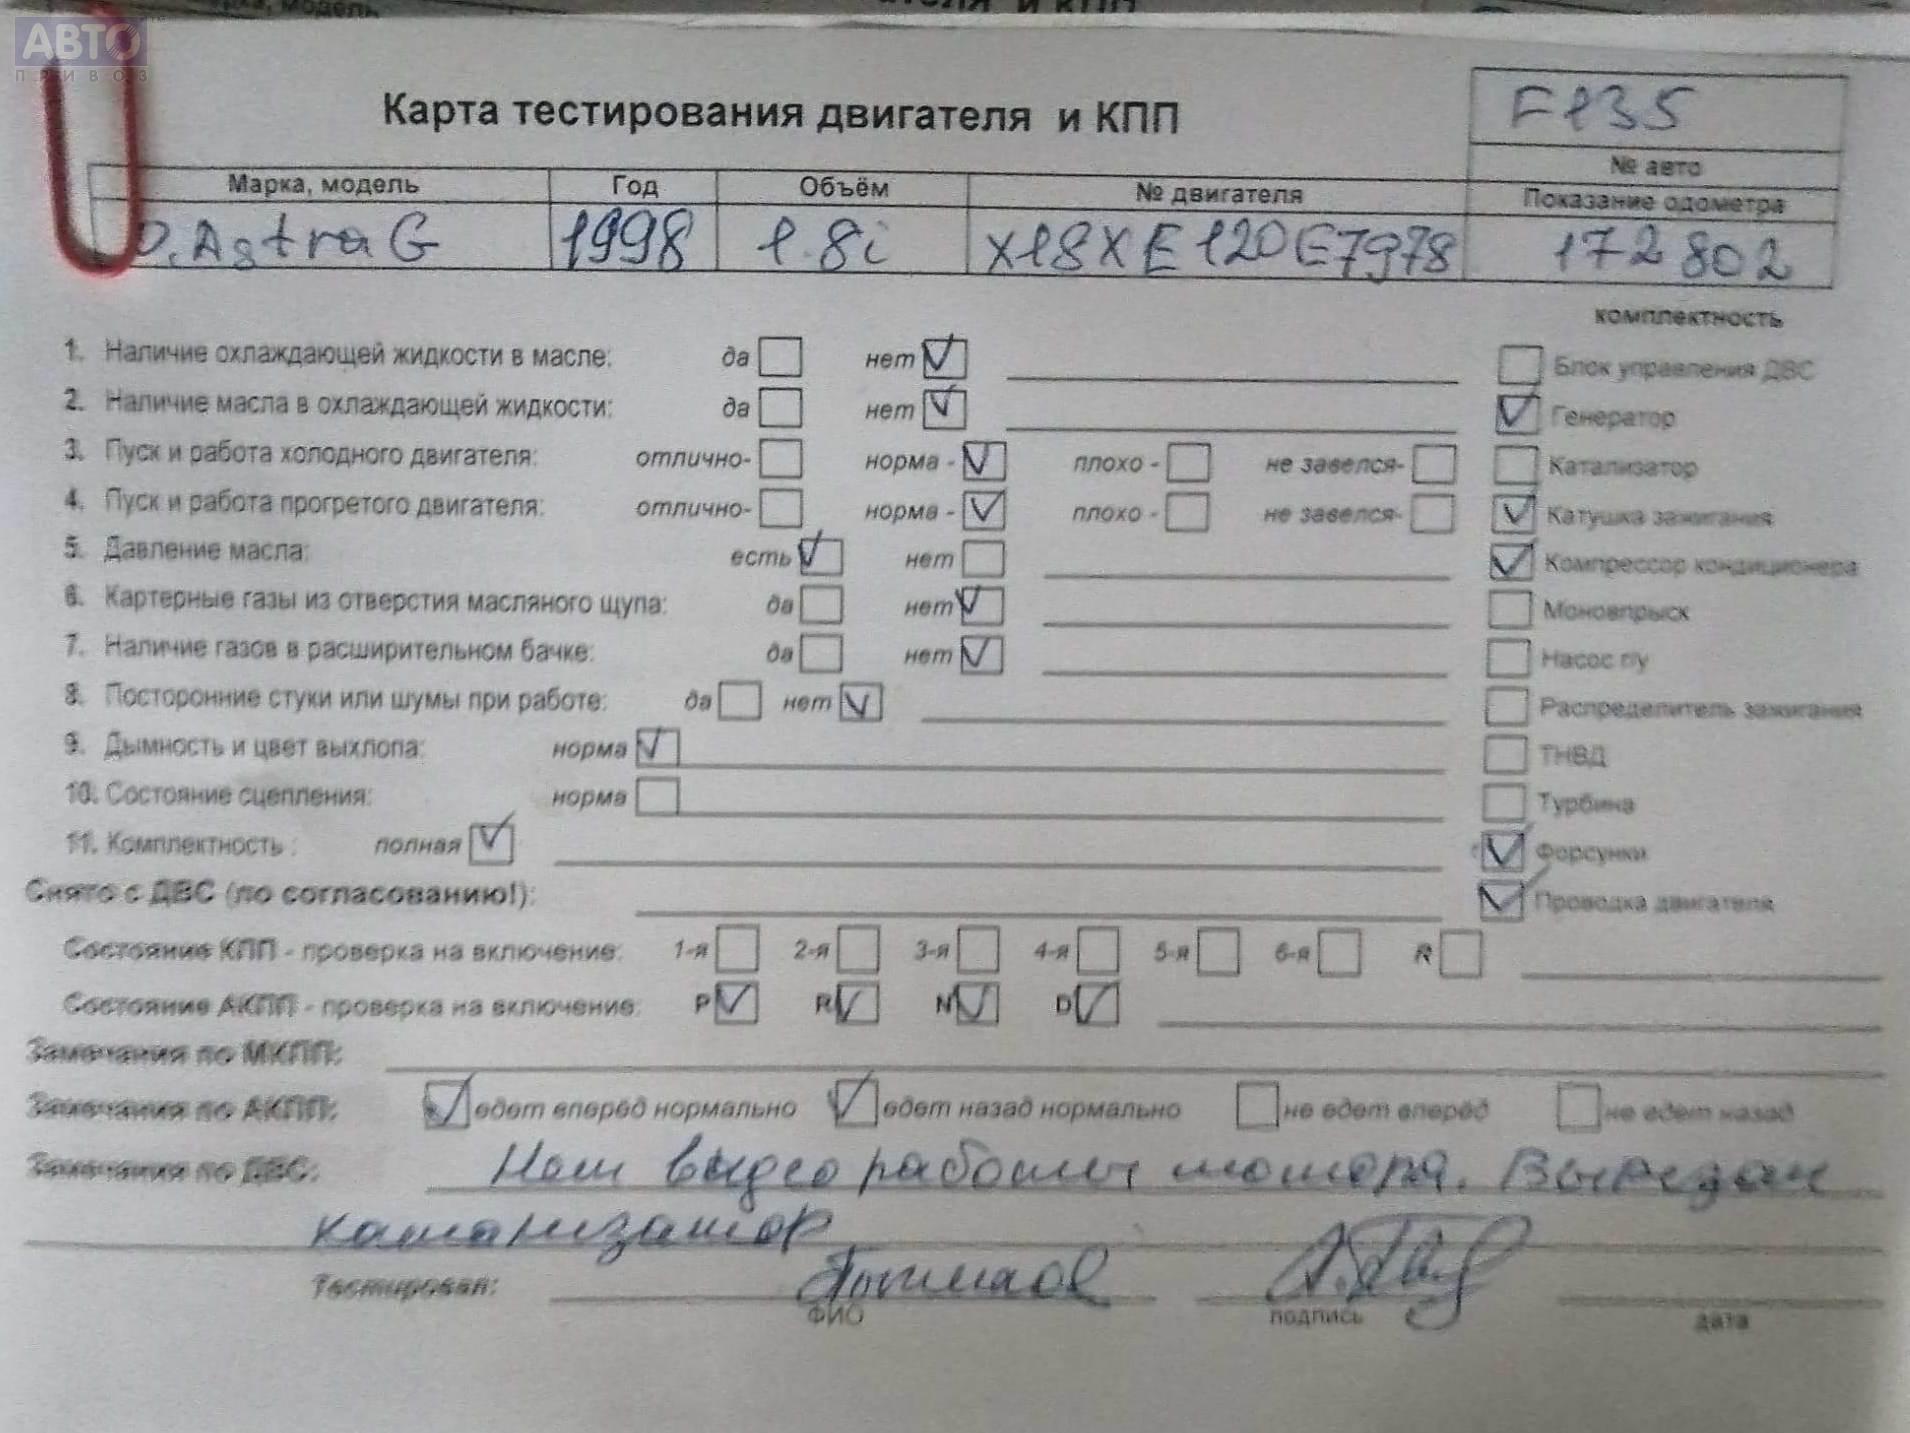 АВТО
ПРИВОЗ
Карта тестирования двигателя и КПП
F135
№ авто
Марка, модель Год Объём № двигателя Показание одометра
O.Astra G 1998 1.8i X18XE120E7978 172 802
комплектность
1. Наличие охлаждающей жидкости в масле: да нет Блок управления ДВС
2. Наличие масла в охлаждающей жидкости: да нет Генератор
3. Пуск и работа холодного двигателя: отлично- норма - плохо - не завелся- Катализатор
4. Пуск и работа прогретого двигателя: отлично- норма - плохо - не завелся- Катушка зажигания
5. Давление масла: есть нет Компрессор кондиционера
6. Картерные газы из отверстия масляного щупа: да нет Моновпрыск
7. Наличие газов в расширительном бачке: да нет Насос г/у
8. Посторонние стуки или шумы при работе: да нет Распределитель зажигания
9. Дымность и цвет выхлопа: норма ТНВД
10. Состояние сцепления: норма Турбина
11. Комплектность : полная Форсунки
Снято с ДВС (по согласованию!): Проводка двигателя
Состояние КПП - проверка на включение: 1-я 2-я 3-я 4-я 5-я 6-я R
Состояние АКПП - проверка на включение: P R N D
Замечания по МКПП:
Замечания по АКПП: едет вперёд нормально едет назад нормально не едет вперёд не едет назад
Замечания по ДВС: видео работы мотора. Вырезан
катализатор
Тестировал:
ФИО подпись дата